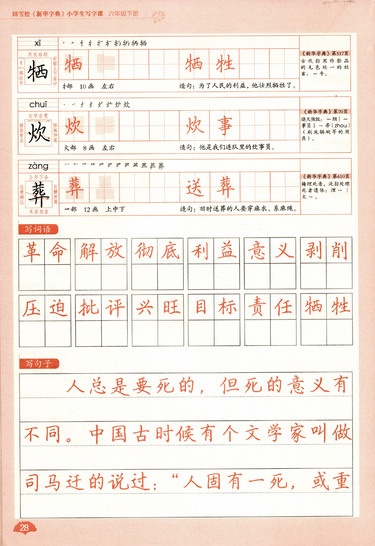 田雪松《新华字典》小学生写字课 六年级下册
xī
牺 牺 牺牲
牜部 10画 左右 造句：为了人民的利益，他牺牲了。
《新华字典》第517页
古代指用作祭品的毛色统一的牲畜：～牛。
chuī
炊 炊 炊事
火部 8画 左右 造句：他是我们连队里的炊事员。
《新华字典》第70页
zàng
葬 葬 送葬
艹部 12画 上中下 造句：旧时送葬的人要穿麻衣、系麻绳。
写词语
革命 解放 彻底 利益 意义 剥削
压迫 批评 兴旺 目标 责任 牺牲
写句子
人总是要死的，但死的意义有
不同。中国古时候有个文学家叫做
司马迁的说过：“人固有一死，或重
28